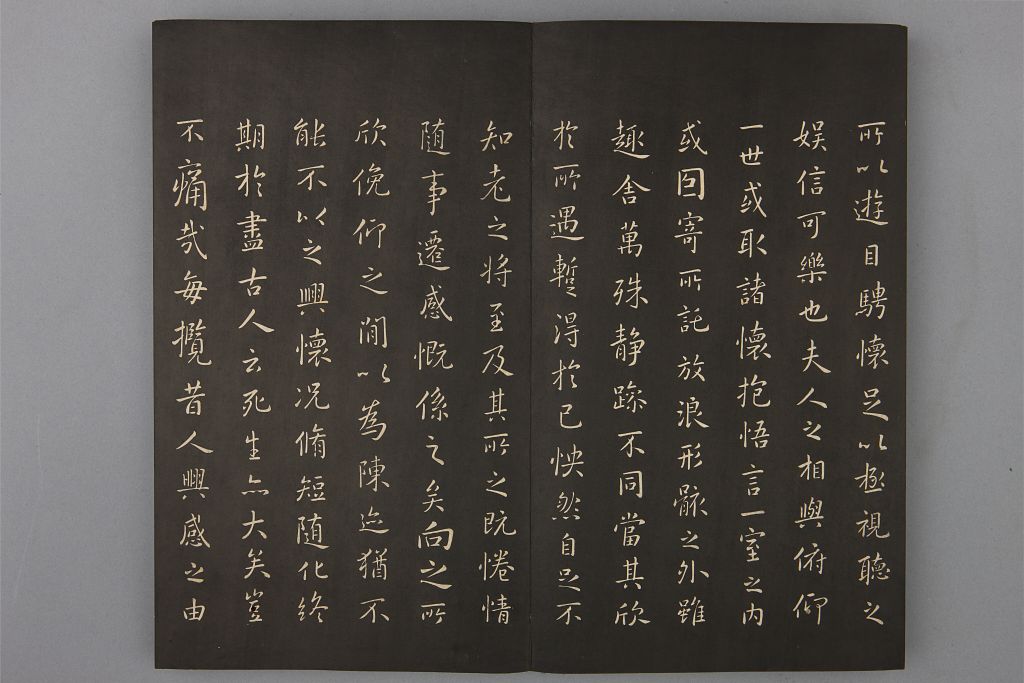 所以遊目騁懷足以極視聽之
娱信可樂也夫人之相與俯仰
一世或取諸懷抱悟言一室之内
或因寄所託放浪形骸之外雖
趣舍萬殊静躁不同當其欣
於所遇蹔得於己怏然自足不
知老之将至及其所之既惓情
随事遷感慨係之矣向之所
欣俛仰之間以為陳迹猶不
能不以之興懷况脩短随化終
期於盡古人云死生亦大矣豈
不痛哉每攬昔人興感之由